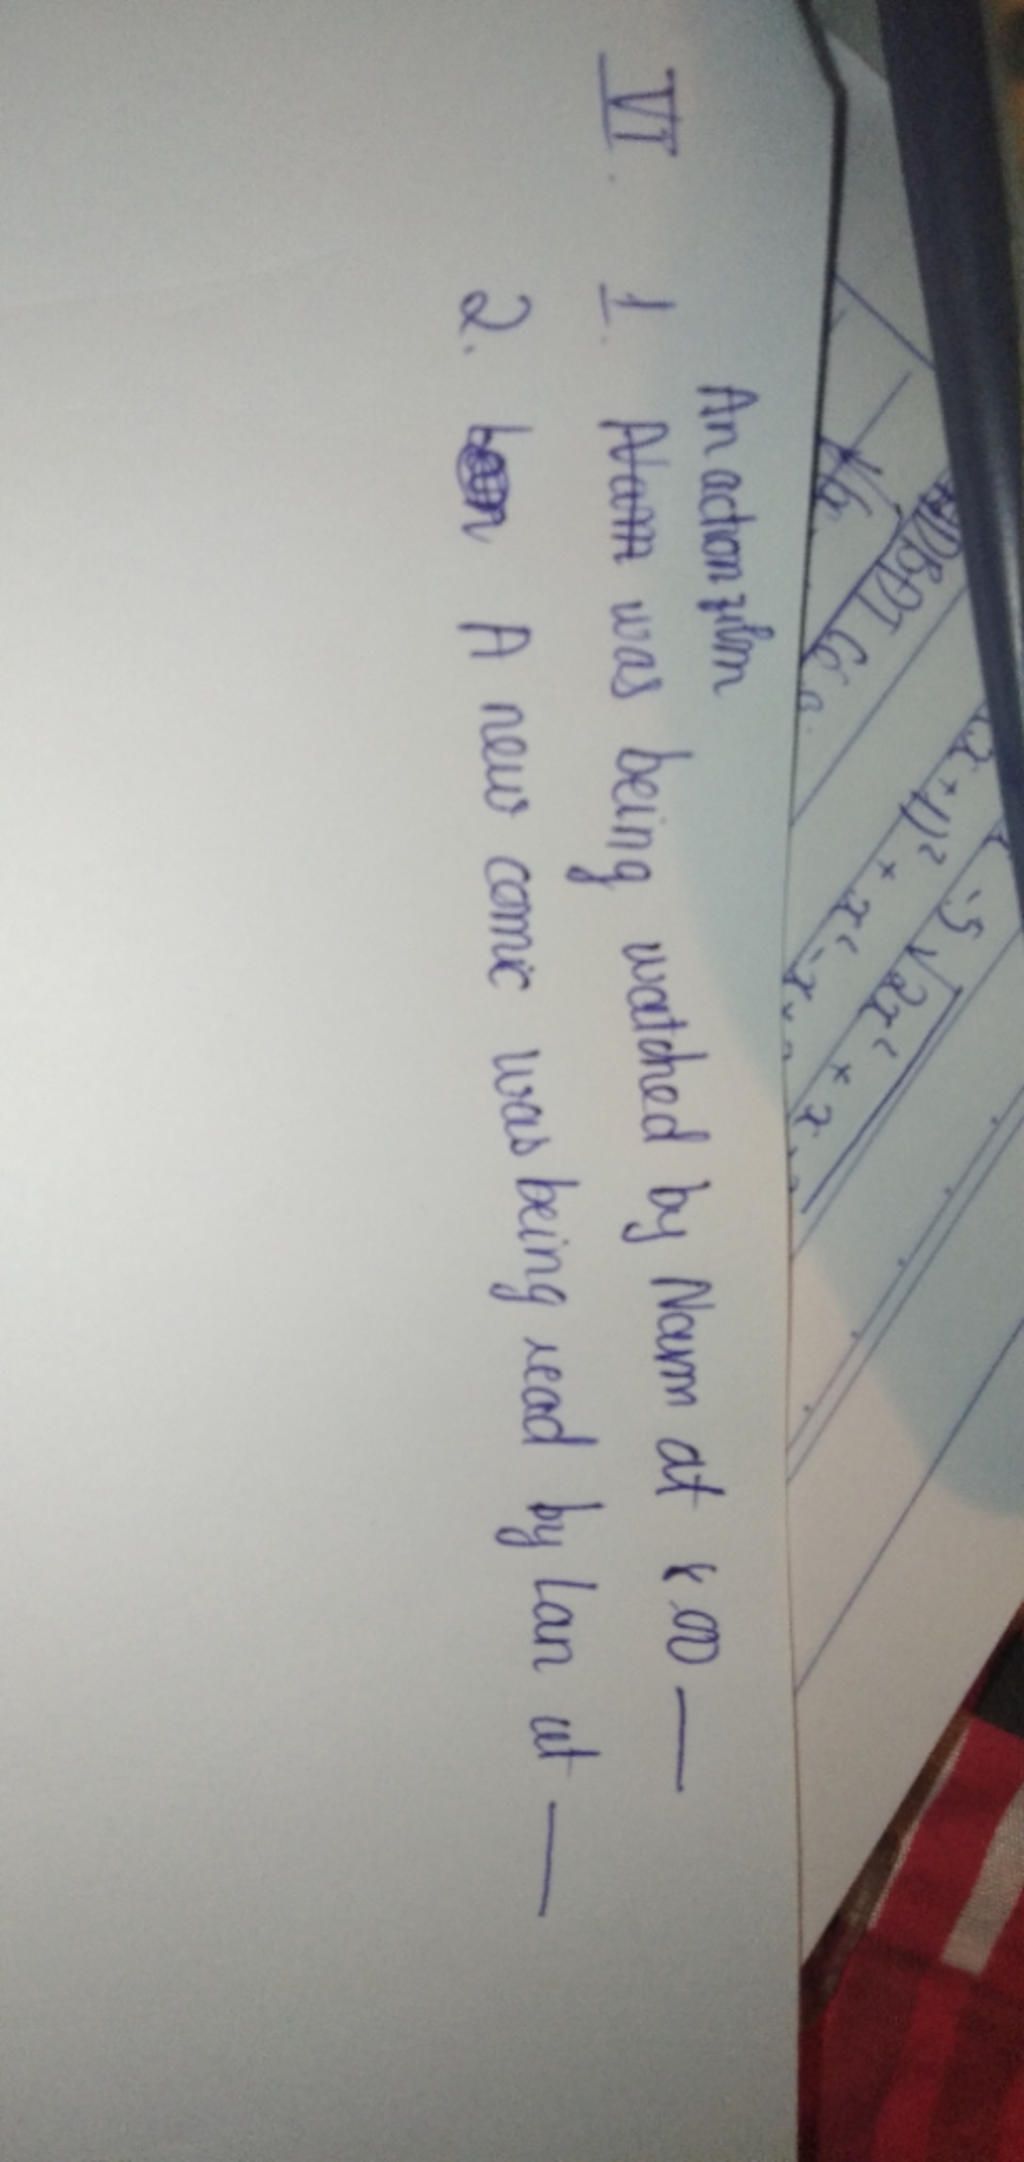 VI.
An action film
1. Nam was being watched by Nam at 8.00 —
2. A new comic was being read by Lan at —
(x + 1)² + x² - x
5√2x² + x